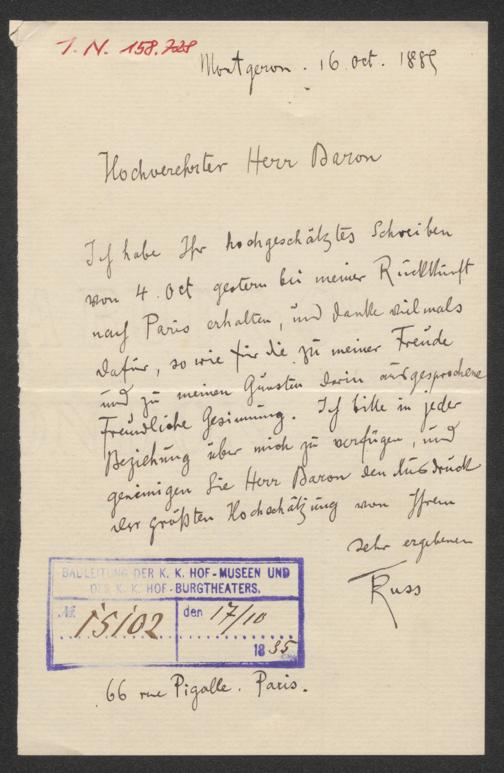 I. N. 158.728
Montgeron. 16. oct. 1885
Hochverehrter Herr Baron
Ich habe Ihr hochgeschätztes Schreiben
von 4. Oct gestern bei meiner Rückkunft
nach Paris erhalten, und danke vielmals
dafür, so wie für die zu meiner Freude
und zu meinen Gunsten darin ausgesprochene
freundliche Gesinnung. Ich bitte in jeder
Beziehung über mich zu verfügen, und
genemigen Sie Herr Baron den Ausdruck
der größten Hochschätzung von Ihrem
sehr ergebenen
Russ
BAULEITUNG DER K. K. HOF-MUSEEN UND
DES K. K. HOF-BURGTHEATERS.
No. 15102 den 17/10
1885
66 rue Pigalle. Paris.